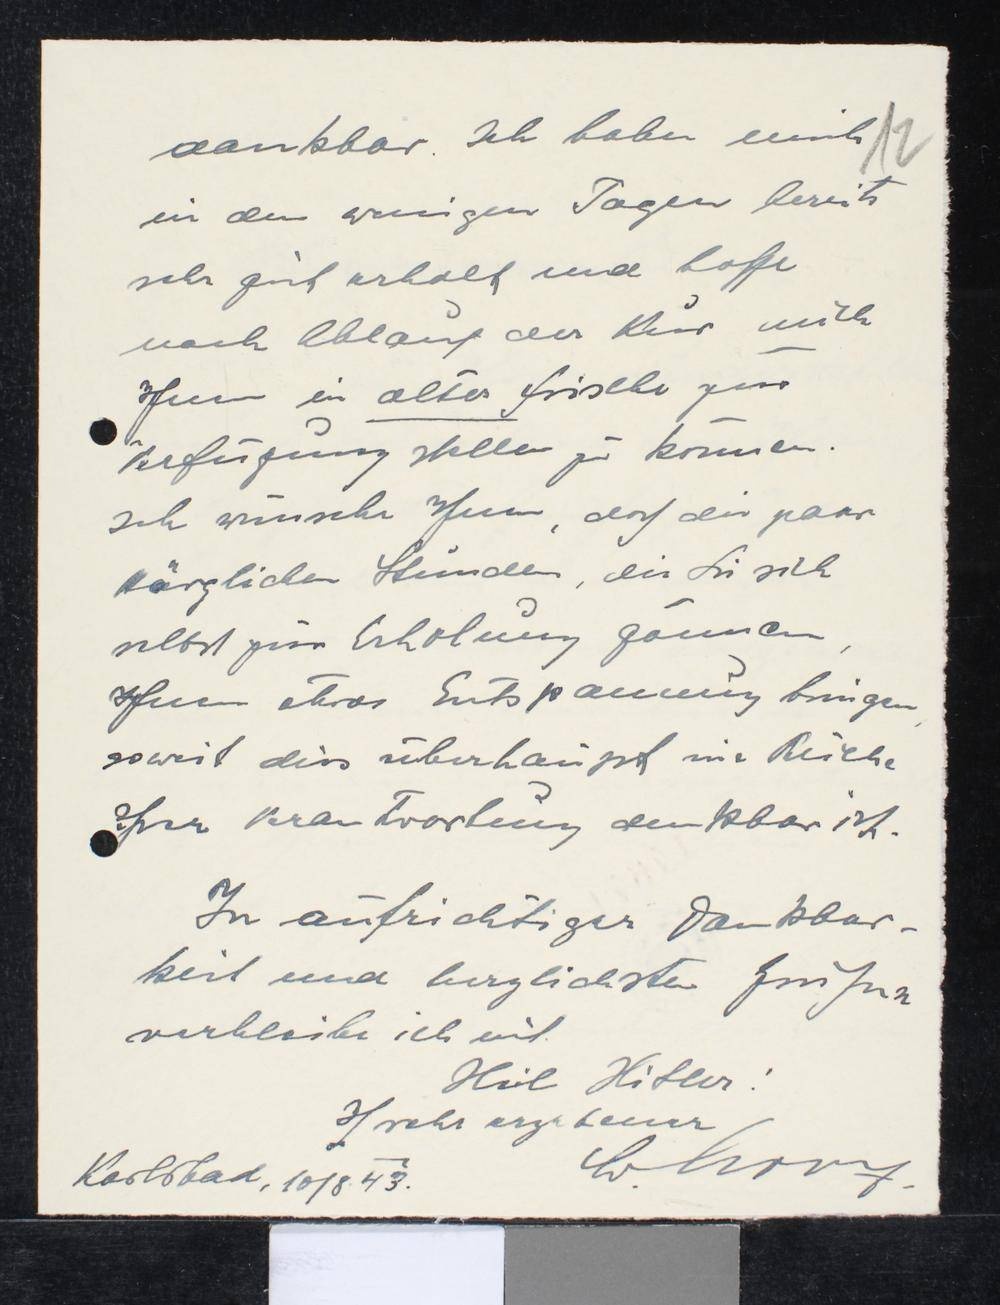 12
dankbar. Ich habe mich
in den wenigen Tagen bereits
sehr gut erholt und hoffe
nach Ablauf der Kur mich
Ihnen in alter Frische zur
Verfügung stellen zu können.
Ich wünsche Ihnen, daß die paar
kärglichen Stunden, die Sie sich
selbst zur Erholung gönnen,
Ihnen etwas Entspannung bringen,
soweit dies überhaupt im Reiche
Ihrer Verantwortung denkbar ist.
In aufrichtiger Dankbar-
keit und herzlichsten Grüßen
verbleibe ich mit
Heil Hitler!
Ihr sehr ergebener
Karlsbad, 10/8.43.